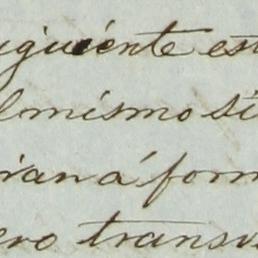 iguiente est
l mismo si
rian á form
ero transv